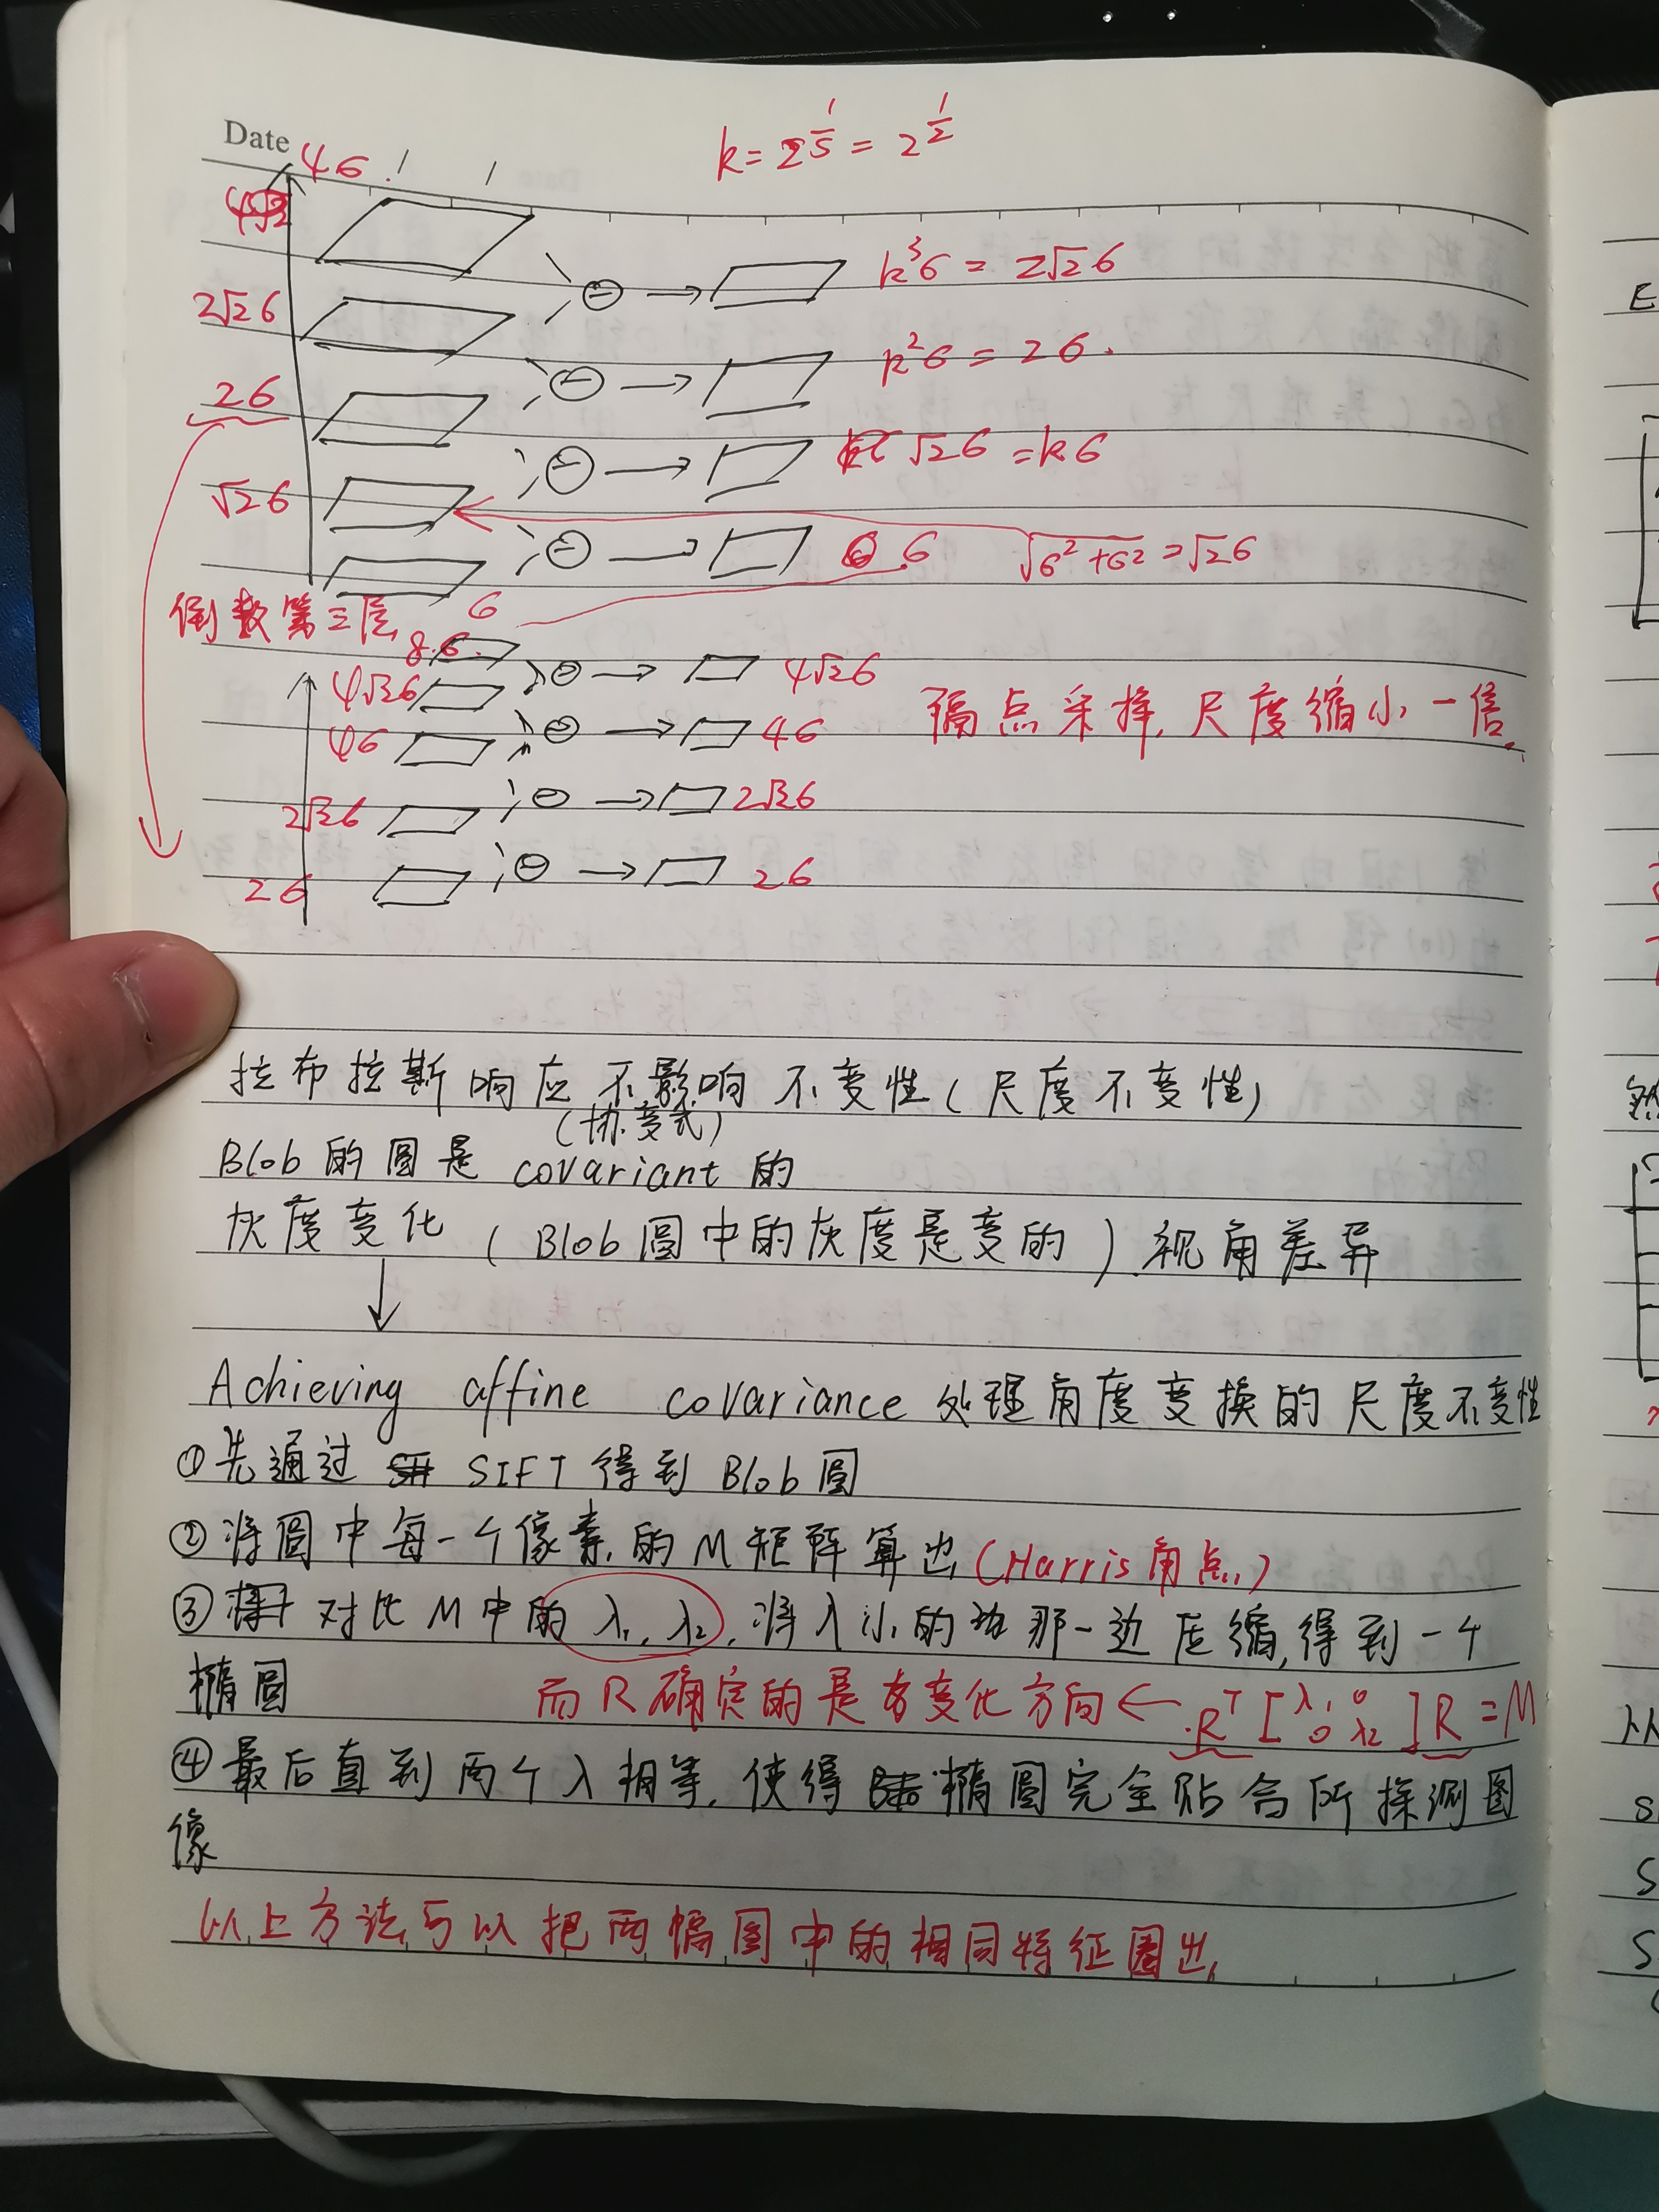 Date
k = 2^{1/s} = 2^{1/2}
4σ
4√2
k³σ = 2√2σ
2√2σ
k²σ = 2σ.
2σ
√2σ = kσ
√2σ
σ
√(σ²+σ²) = √2σ
σ
倒数第三层
8σ
4√2σ
4√2σ
隔点采择, 尺度缩小一倍.
4σ
4σ
2√2σ
2√2σ
2σ
2σ
拉布拉斯响应不影响不变性(尺度不变性)
(协变式)
Blob的圆是 covariant 的
灰度变化 (Blob圆中的灰度是变的). 视角差异
↓
Achieving affine covariance 处理角度变换的尺度不变性
①先通过 SIFT 得到 Blob 圆
②将圆中每一个像素的M矩阵算出(Harris角点)
③对比M中的λ₁, λ₂, 将λ小的那一边压缩, 得到一个
椭圆
而R确定的是变化方向 ← R^T [λ₁ 0 0 λ₂] R = M
④最后直到两个λ相等, 使得椭圆完全贴合所探测图
像
以上方法可以把两幅图中的相同特征圈出